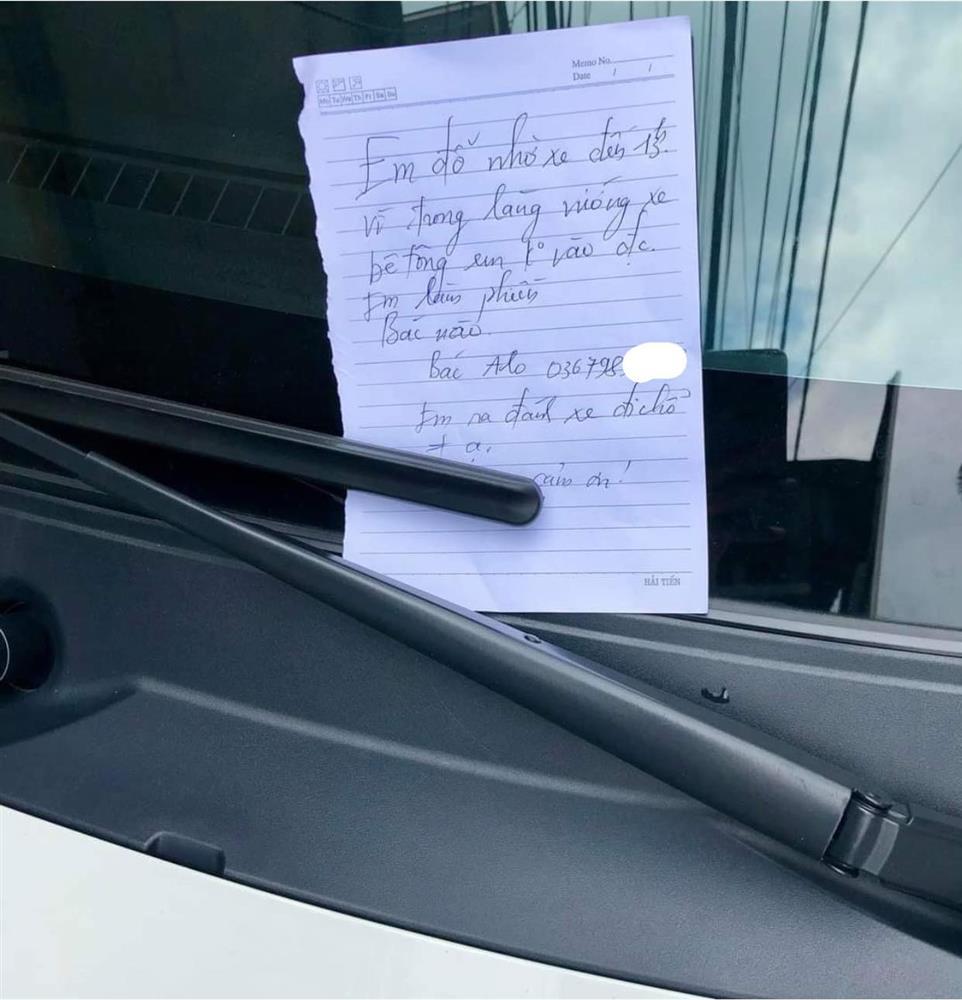 Memo No.
Date / /
Mo Tu We Th Fr Sa Su
Em đỗ nhờ xe đến 13h.
vì trong làng vướng xe
bê tông em k° vào đ/c.
Em làm phiền
Bác nào.
Bác Alo 036798
Em ra đánh xe đi chỗ
≠ ạ.
cảm ơn!
HẢI TIẾN